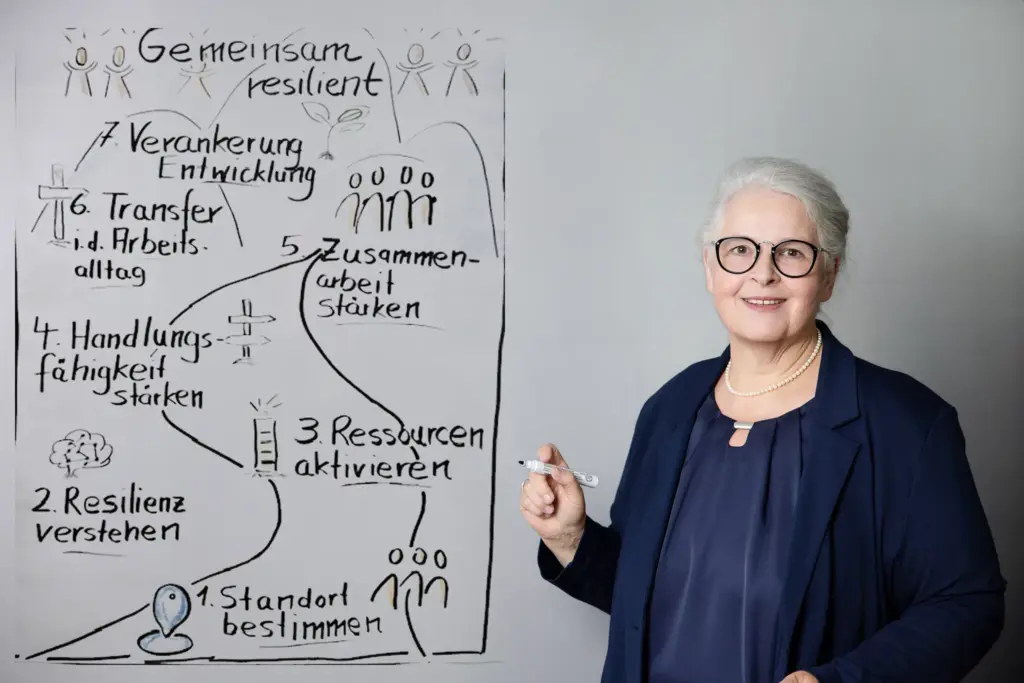 Gemeinsam
resilient
7. Verankerung
Entwicklung
6. Transfer
i.d. Arbeits-
alltag
5. Zusammen-
arbeit
stärken
4. Handlungs-
fähigkeit
stärken
3. Ressourcen
aktivieren
2. Resilienz
verstehen
1. Standort
bestimmen